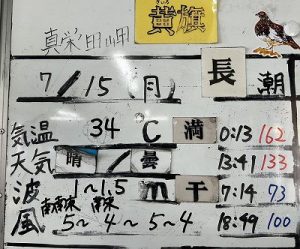 黄旗
真栄田岬
7/15 月 長潮
気温 34 C 満 0:13 162
天気 晴/曇 13:41 133
波 1~1.5 m 干 7:14 73
風 5~4~5~4 18:49 100